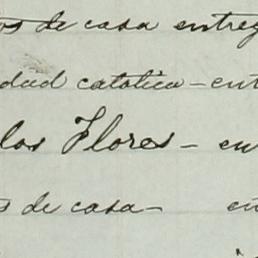 os de casa entreg
idad catolica - ent
los Flores - en
s de casa - en